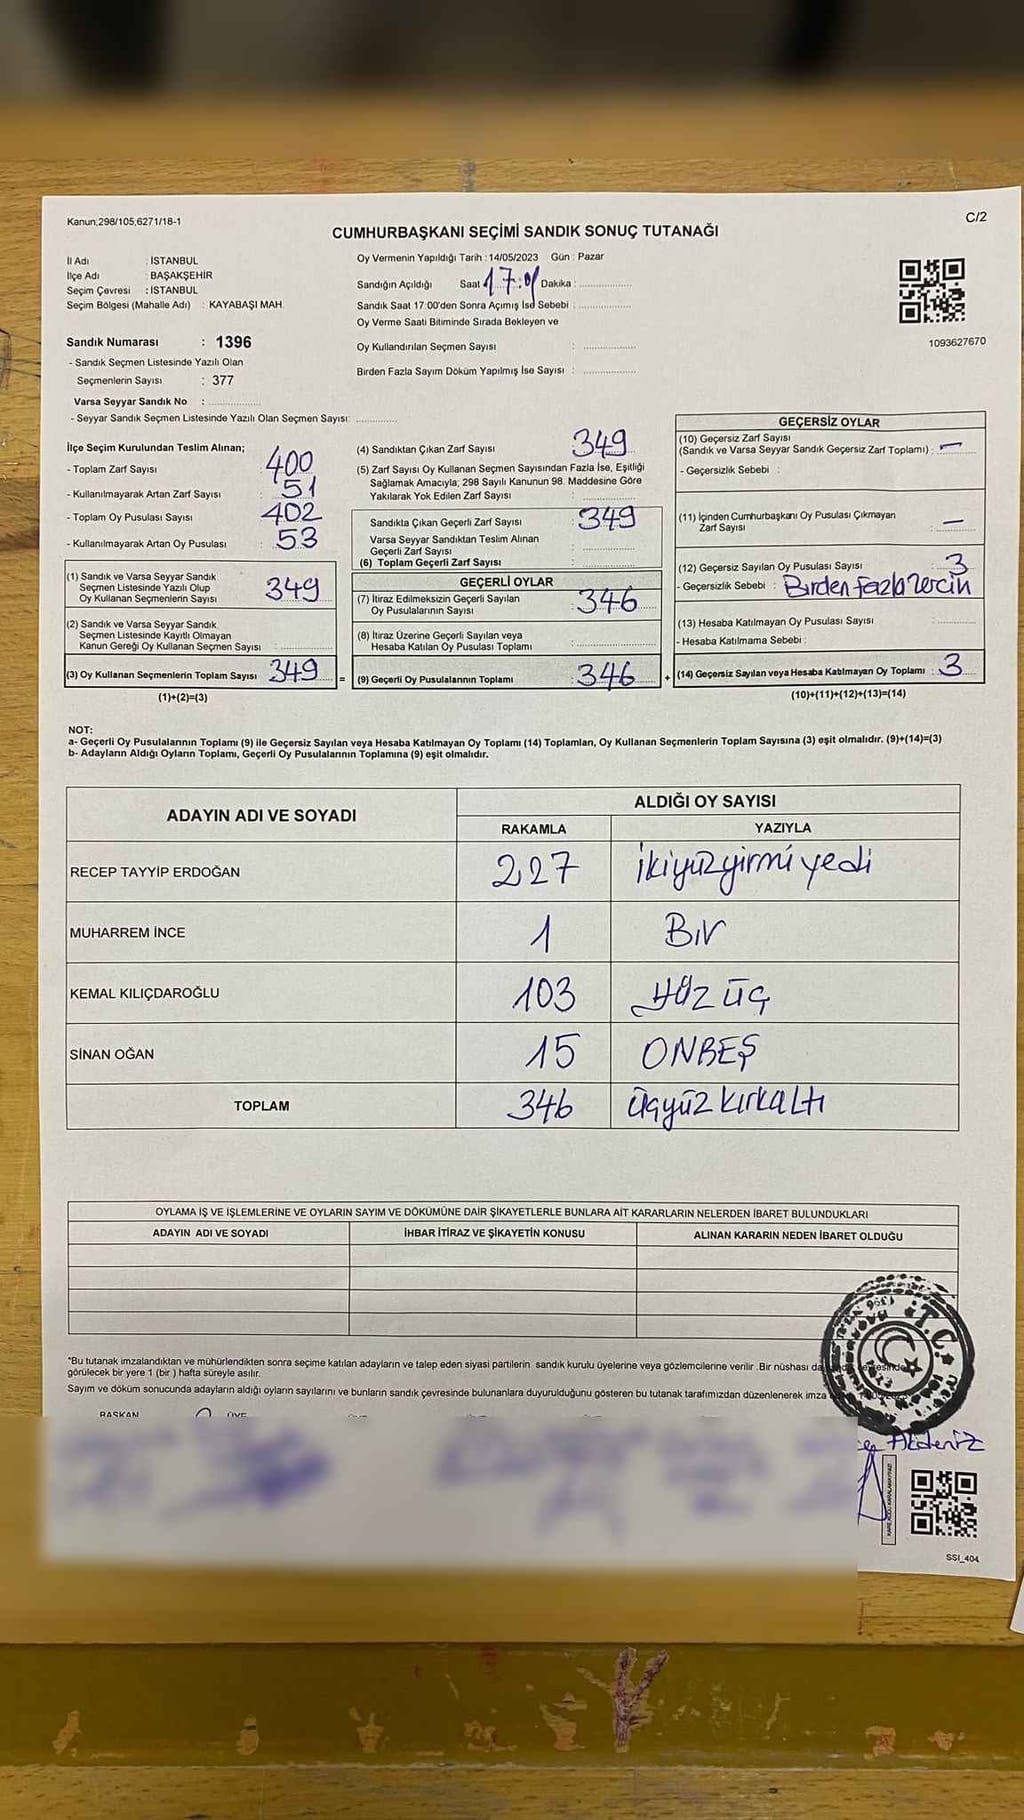 Kanun;298/105,6271/18-1
C/2
CUMHURBAŞKANI SEÇİMİ SANDIK SONUÇ TUTANAĞI
İl Adı : İSTANBUL
İlçe Adı : BAŞAKŞEHİR
Seçim Çevresi : İSTANBUL
Seçim Bölgesi (Mahalle Adı) : KAYABAŞI MAH.
Oy Vermenin Yapıldığı Tarih : 14/05/2023 Gün : Pazar
Sandığın Açıldığı Saat 17:01 Dakika : ................
Sandık Saat 17:00'den Sonra Açımış İse Sebebi : ................
Oy Verme Saati Bitiminde Sırada Bekleyen ve
Oy Kullandırılan Seçmen Sayısı : ................
Birden Fazla Sayım Döküm Yapılmış İse Sayısı : ................
1093627670
Sandık Numarası : 1396
- Sandık Seçmen Listesinde Yazılı Olan
Seçmenlerin Sayısı : 377
Varsa Seyyar Sandık No : ................
- Seyyar Sandık Seçmen Listesinde Yazılı Olan Seçmen Sayısı: ............
İlçe Seçim Kurulundan Teslim Alınan;
- Toplam Zarf Sayısı : 400
- Kullanılmayarak Artan Zarf Sayısı : 51
- Toplam Oy Pusulası Sayısı : 402
- Kullanılmayarak Artan Oy Pusulası : 53
(1) Sandık ve Varsa Seyyar Sandık
Seçmen Listesinde Yazılı Olup
Oy Kullanan Seçmenlerin Sayısı : 349
(2) Sandık ve Varsa Seyyar Sandık
Seçmen Listesinde Kayıtlı Olmayan
Kanun Gereği Oy Kullanan Seçmen Sayısı : ............
(3) Oy Kullanan Seçmenlerin Toplam Sayısı : 349 =
(1)+(2)=(3)
(4) Sandıktan Çıkan Zarf Sayısı : 349
(5) Zarf Sayısı Oy Kullanan Seçmen Sayısından Fazla İse, Eşitliği
Sağlamak Amacıyla; 298 Sayılı Kanunun 98. Maddesine Göre
Yakılarak Yok Edilen Zarf Sayısı : ............
Sandıkta Çıkan Geçerli Zarf Sayısı : 349
Varsa Seyyar Sandıktan Teslim Alınan
Geçerli Zarf Sayısı : ............
(6) Toplam Geçerli Zarf Sayısı : ............
GEÇERLİ OYLAR
(7) İtiraz Edilmeksizin Geçerli Sayılan
Oy Pusulalarının Sayısı : 346
(8) İtiraz Üzerine Geçerli Sayılan veya
Hesaba Katılan Oy Pusulası Toplamı : ............
(9) Geçerli Oy Pusulalarının Toplamı : 346 +
GEÇERSİZ OYLAR
(10) Geçersiz Zarf Sayısı
(Sandık ve Varsa Seyyar Sandık Geçersiz Zarf Toplamı) : —
- Geçersizlik Sebebi :
(11) İçinden Cumhurbaşkanı Oy Pusulası Çıkmayan
Zarf Sayısı : —
(12) Geçersiz Sayılan Oy Pusulası Sayısı : 3
- Geçersizlik Sebebi : Birden fazla Tercih
(13) Hesaba Katılmayan Oy Pusulası Sayısı : ............
- Hesaba Katılmama Sebebi :
(14) Geçersiz Sayılan veya Hesaba Katılmayan Oy Toplamı : 3
(10)+(11)+(12)+(13)=(14)
NOT:
a- Geçerli Oy Pusulalarının Toplamı (9) ile Geçersiz Sayılan veya Hesaba Katılmayan Oy Toplamı (14) Toplamları, Oy Kullanan Seçmenlerin Toplam Sayısına (3) eşit olmalıdır. (9)+(14)=(3)
b- Adayların Aldığı Oyların Toplamı, Geçerli Oy Pusulalarının Toplamına (9) eşit olmalıdır.
ADAYIN ADI VE SOYADI ALDIĞI OY SAYISI
RAKAMLA YAZIYLA
RECEP TAYYİP ERDOĞAN 227 ikiyüzyirmi yedi
MUHARREM İNCE 1 Bir
KEMAL KILIÇDAROĞLU 103 yüz üç
SİNAN OĞAN 15 ONBEŞ
TOPLAM 346 üçyüz kırkaltı
OYLAMA İŞ VE İŞLEMLERİNE VE OYLARIN SAYIM VE DÖKÜMÜNE DAİR ŞİKAYETLERLE BUNLARA AİT KARARLARIN NELERDEN İBARET BULUNDUKLARI
ADAYIN ADI VE SOYADI İHBAR İTİRAZ VE ŞİKAYETİN KONUSU ALINAN KARARIN NEDEN İBARET OLDUĞU
*Bu tutanak imzalandıktan ve mühürlendikten sonra seçime katılan adayların ve talep eden siyasi partilerin sandık kurulu üyelerine veya gözlemcilerine verilir .Bir nüshası da
görülecek bir yere 1 (bir ) hafta süreyle asılır.
Sayım ve döküm sonucunda adayların aldığı oyların sayılarını ve bunların sandık çevresinde bulunanlara duyurulduğunu gösteren bu tutanak tarafımızdan düzenlenerek imza
BAŞKAN ÜYE
T.C.
1396
Akdeniz
SSI_404